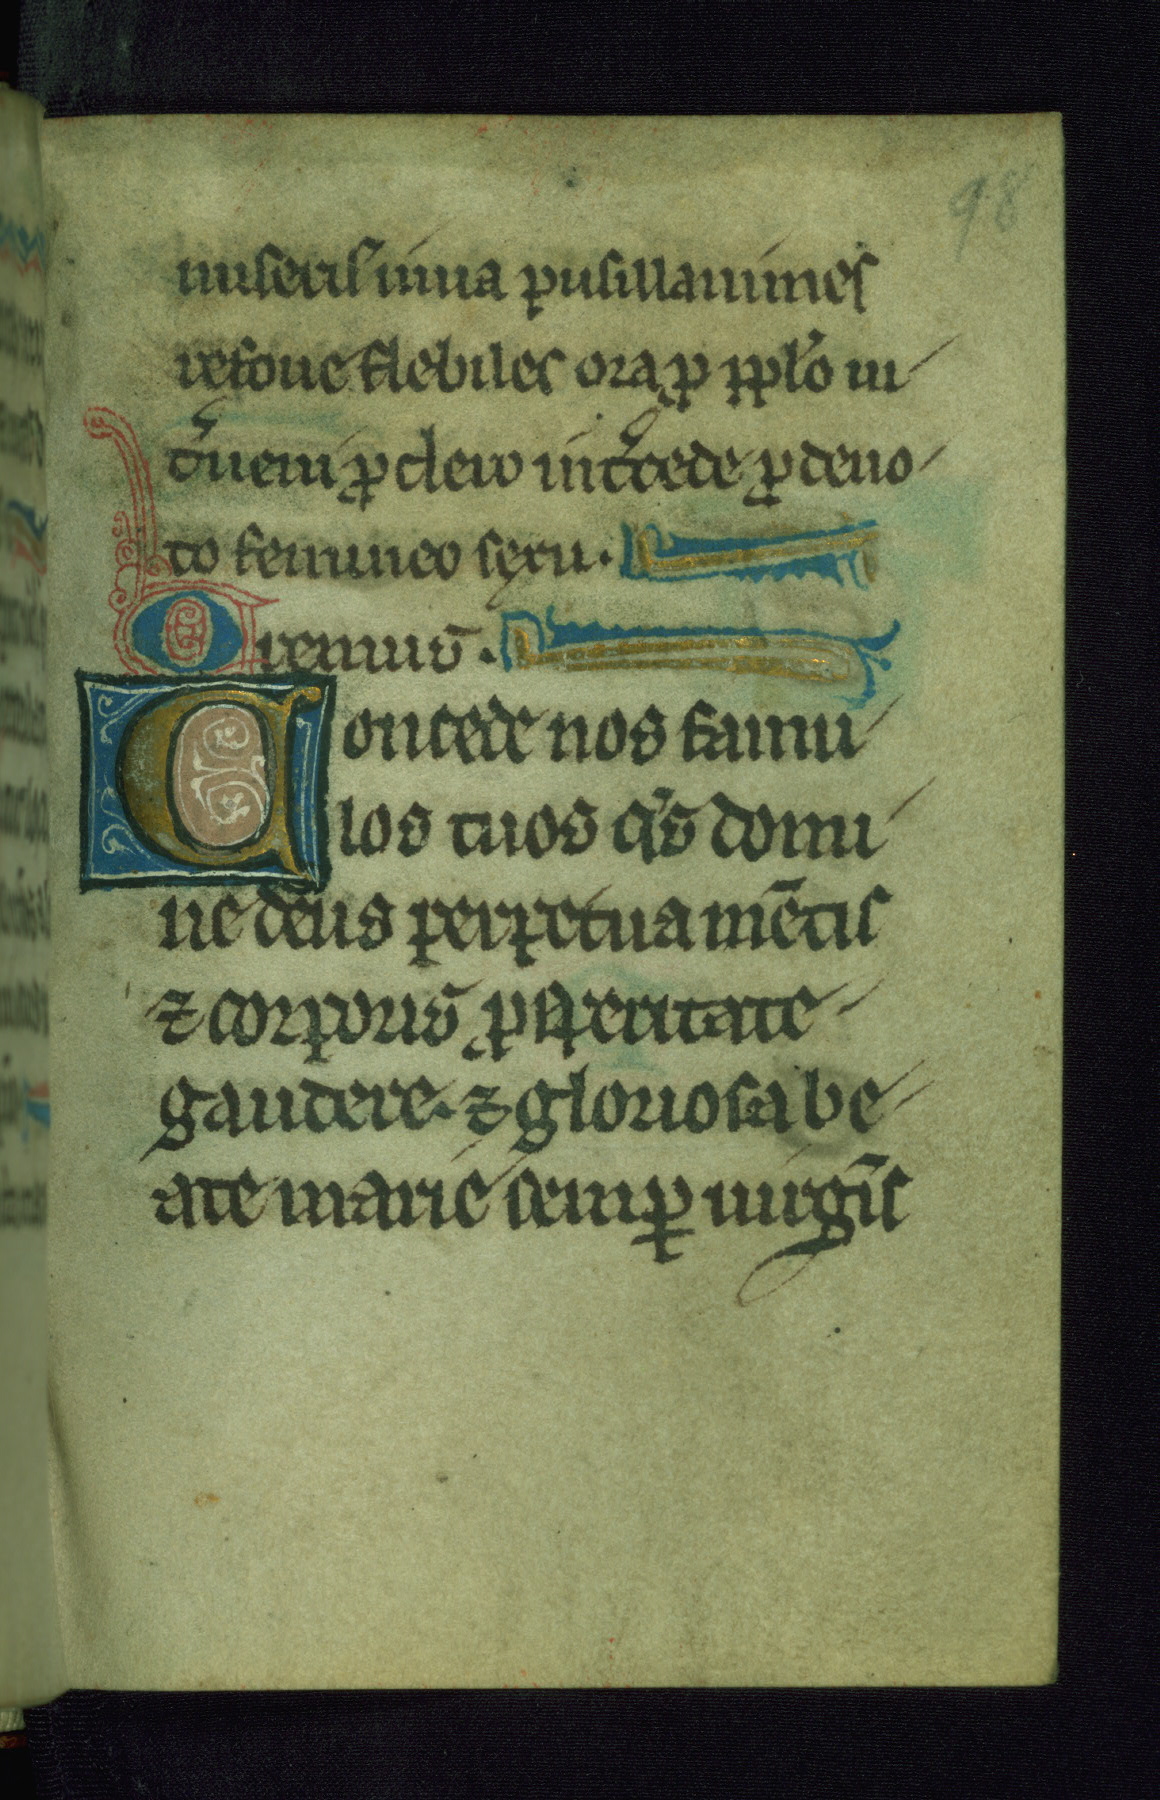 98
miseris iuua pusillanimes
refoue flebiles ora ꝓ pplo̅ in
t̅ueni ꝓ clero int̅cede ꝓ deuo
to femineo sexu.
Oremus.
Concede nos famu
los tuos qs̅ domi
ne deus perpetua me̅tis
⁊ corporis ꝓsperitate
gaudere. ⁊ gloriosa be
ate marie semꝑ uirgi̅s